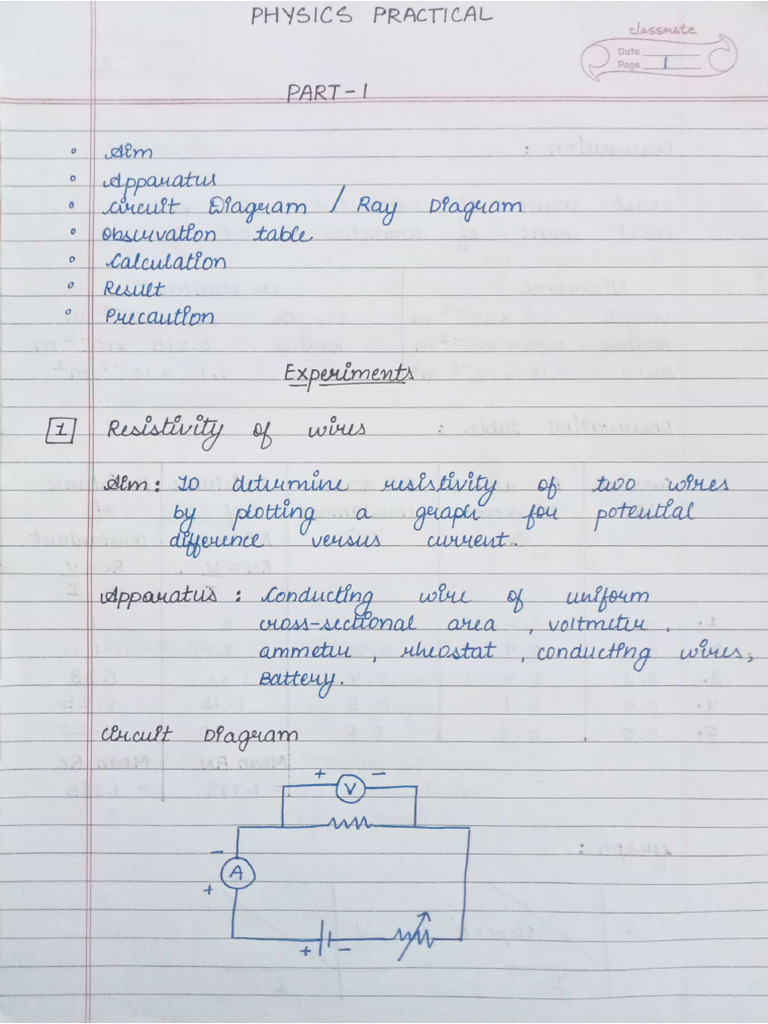 PHYSICS PRACTICAL
classmate
Date
Page 1
PART-1
• Aim
• Apparatus
• Circuit Diagram / Ray Diagram
• Observation table
• Calculation
• Result
• Precaution
Experiments
1 Resistivity of wires
Aim: To determine resistivity of two wires
by plotting graph for potential
difference versus current.
Apparatus: Conducting wire of uniform
cross-sectional area, voltmeter,
ammeter, rheostat, conducting wires,
Battery.
Circuit Diagram
+ V -
-
A
+
+ -